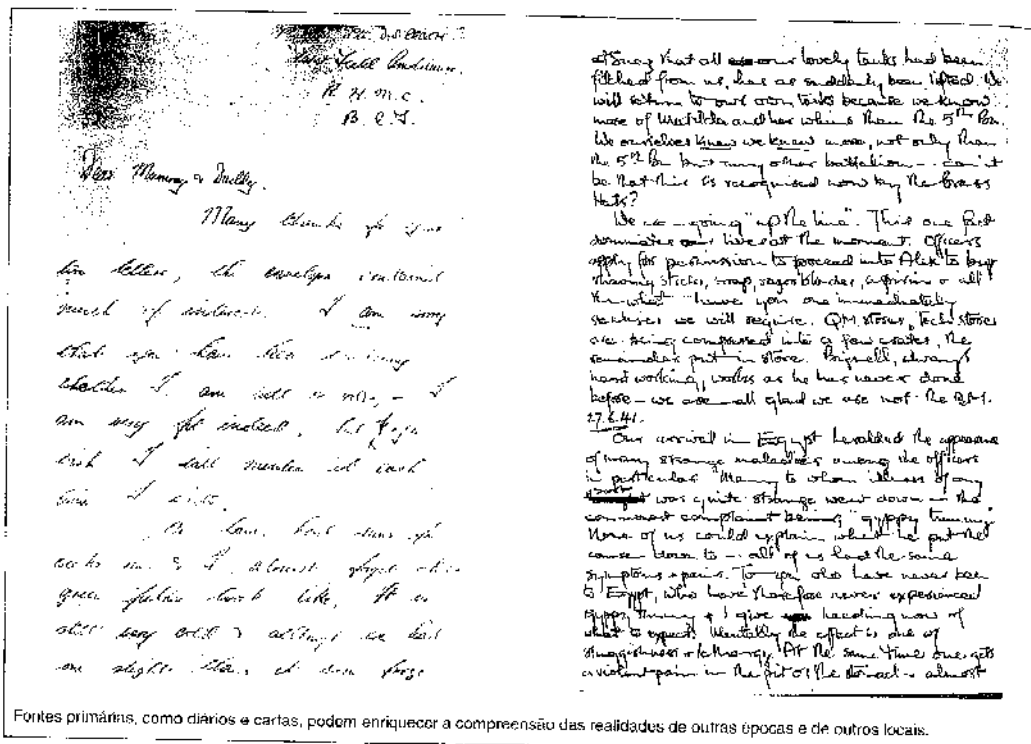 Field Ambulance.
R.A.M.C.
B.E.F.
Dear Mammy & Daddy.
Many thanks for your
two letters, the envelope contained
much of interest. I am sorry
that you have been
whether I am well or not, - I
am very fit indeed, but if you
wish I shall mention it each
time I write.
We have had snow for
weeks now & I almost forget what
green fields look like. It is
still very cold & although we had
one slight thaw, it soon froze
that all our lovely tanks had been
filched from us, has as suddenly been lifted. We
will return to our own tanks because we know
more of Matilda and her whims than the 5th Bn.
We ourselves knew we knew more, not only than
the 5th Bn but many other battalion - can it
be that this is recognised now by the brass
Hats?
We are going "up the line". This one fact
dominates our lives at the moment. Officers
apply for permission to proceed into Alex to buy
shaving sticks, soap, razor blades, aspirins & all
the what have you one immediately
we will require. QM stores, Tech stores
are being compressed into a few crates, the
remainder put in store. always
hard working, works as he has never done
before - we are all glad we are not the Q.M.
27.6.41.
Our arrival in Egypt heralded the appearance
of many strange maladies among the officers
in particular. Many to whom illness of any
sort was quite strange went down - the
commonest complaint being "gyppy tummy"
None of us could explain what he put the
cause down to - all of us had the same
symptoms & pains. To you who have never been
to Egypt, who have therefore never experienced
gyppy tummy I give heading now of
what to expect. Mentally the effect is one of
sluggishness & lethargy. At the same time one gets
a violent pain in the pit of the stomach - almost
Fontes primárias, como diários e cartas, podem enriquecer a compreensão das realidades de outras épocas e de outros locais.